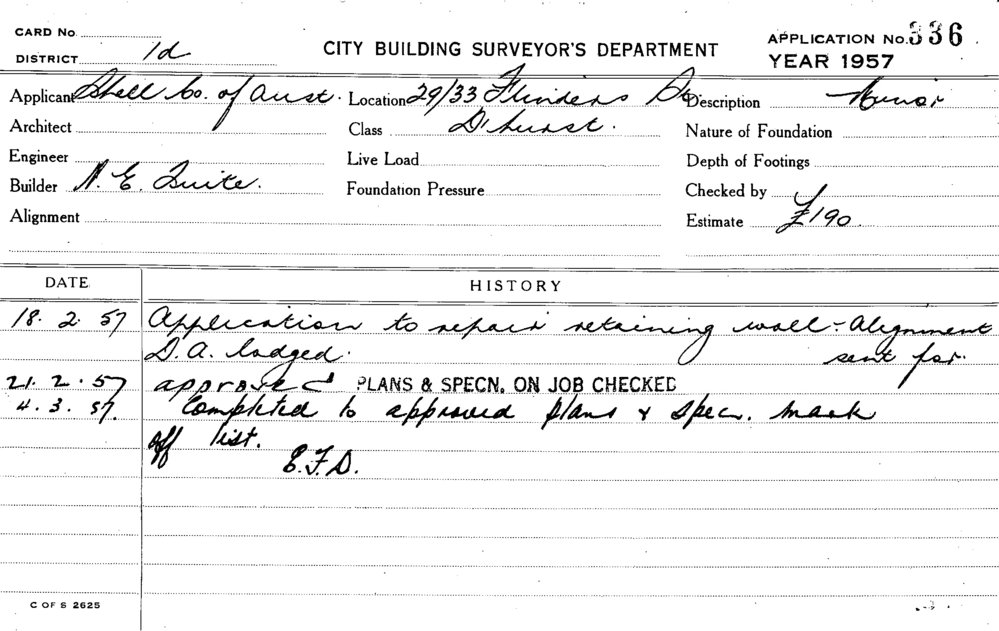 CARD No.
DISTRICT 1d
CITY BUILDING SURVEYOR'S DEPARTMENT
APPLICATION No. 336
YEAR 1957
Applicant Shell Co. of Aust. Location 29/33 Flinders Description Minor
Architect Class D'hurst. Nature of Foundation
Engineer Live Load Depth of Footings
Builder N. E. Tuite. Foundation Pressure Checked by
Alignment Estimate £190
DATE HISTORY
18. 2. 57 Application to repair retaining wall - Alignment
D.A. lodged. sent for.
21. 2. 57 approved PLANS & SPECN. ON JOB CHECKED
4. 3. 57. Completed to approved plans & specn. Mark
off list.
E.F.D.
C OF S 2625